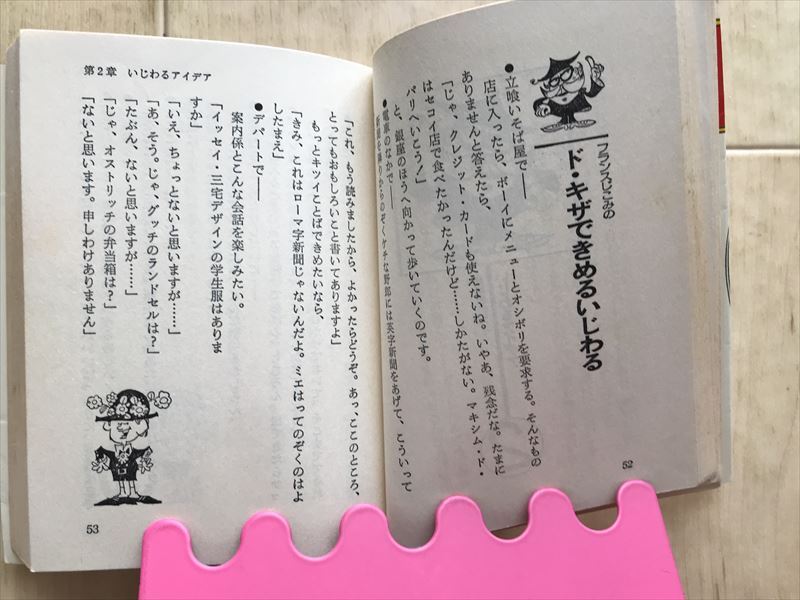 フランスじこみの
ド・キザできめるいじわる
●立喰いそば屋で――
店に入ったら、ボーイにメニューとオシボリを要求する。そんなもの
ありませんと答えたら、
「じゃ、クレジット・カードも使えないね。いやあ、残念だな。たまに
はセコイ店で食べたかったんだけど……しかたがない。マキシム・ド・
パリへいこう！」
と、銀座のほうへ向かって歩いていくのです。
●電車のなかで――
新聞を隣りからのぞくケチな野郎には英字新聞をあげて、こういって
52
第2章 いじわるアイデア
「これ、もう読みましたから、よかったらどうぞ。あっ、ここのところ、
とってもおもしろいこと書いてありますよ」
もっとキツイことばできめたいなら、
「きみ、これはローマ字新聞じゃないんだよ。ミエはってのぞくのはよ
したまえ」
●デパートで――
案内係とこんな会話を楽しみたい。
「イッセイ・三宅デザインの学生服はありま
すか」
「いえ、ちょっとないと思いますが……」
「あ、そう。じゃ、グッチのランドセルは？」
「たぶん、ないと思いますが……」
「じゃ、オストリッチの弁当箱は？」
「ないと思います。申しわけありません」
53